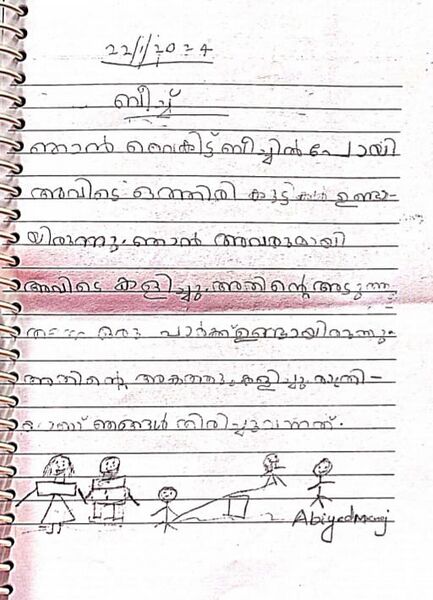 22/1/2024
ബീച്ച്
ഞാൻ വൈകിട്ട് ബീച്ചിൽ പോയി
അവിടെ ഒത്തിരി കുട്ടികൾ ഉണ്ടാ-
യിരുന്നു. ഞാൻ അവരുമായി
അവിടെ കളിച്ചു. അതിന്റെ അടുത്തു
ഒരു പാർക്ക് ഉണ്ടായിരുന്നു.
അതിന്റെ അകത്തു കളിച്ചു. രാത്രി-
ഞങ്ങൾ തിരിച്ചുവന്നത്.
Abiyedmanoj